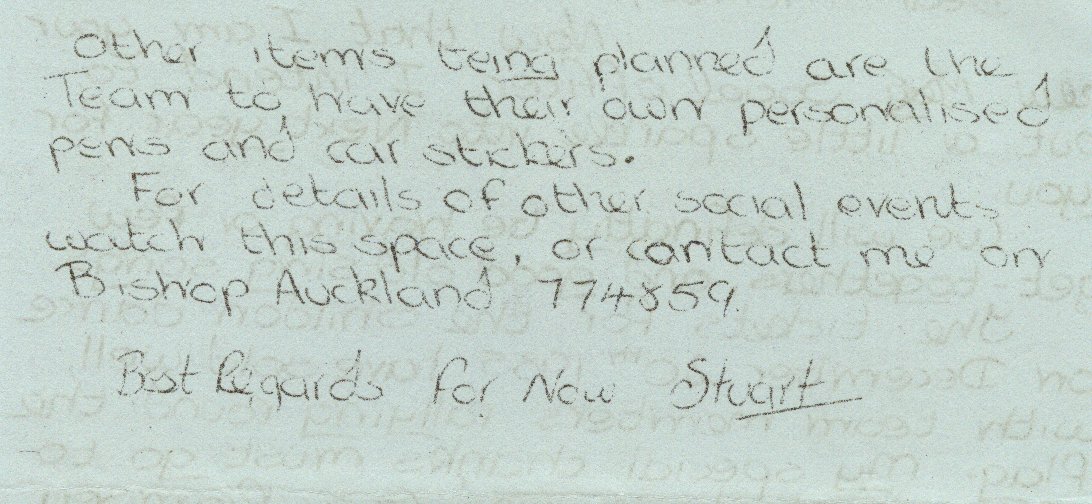 Other items being planned are the
Team to have their own personalised
pens and car stickers.
For details of other social events
watch this space, or contact me on
Bishop Auckland 774859.
Best Regards for Now Stuart